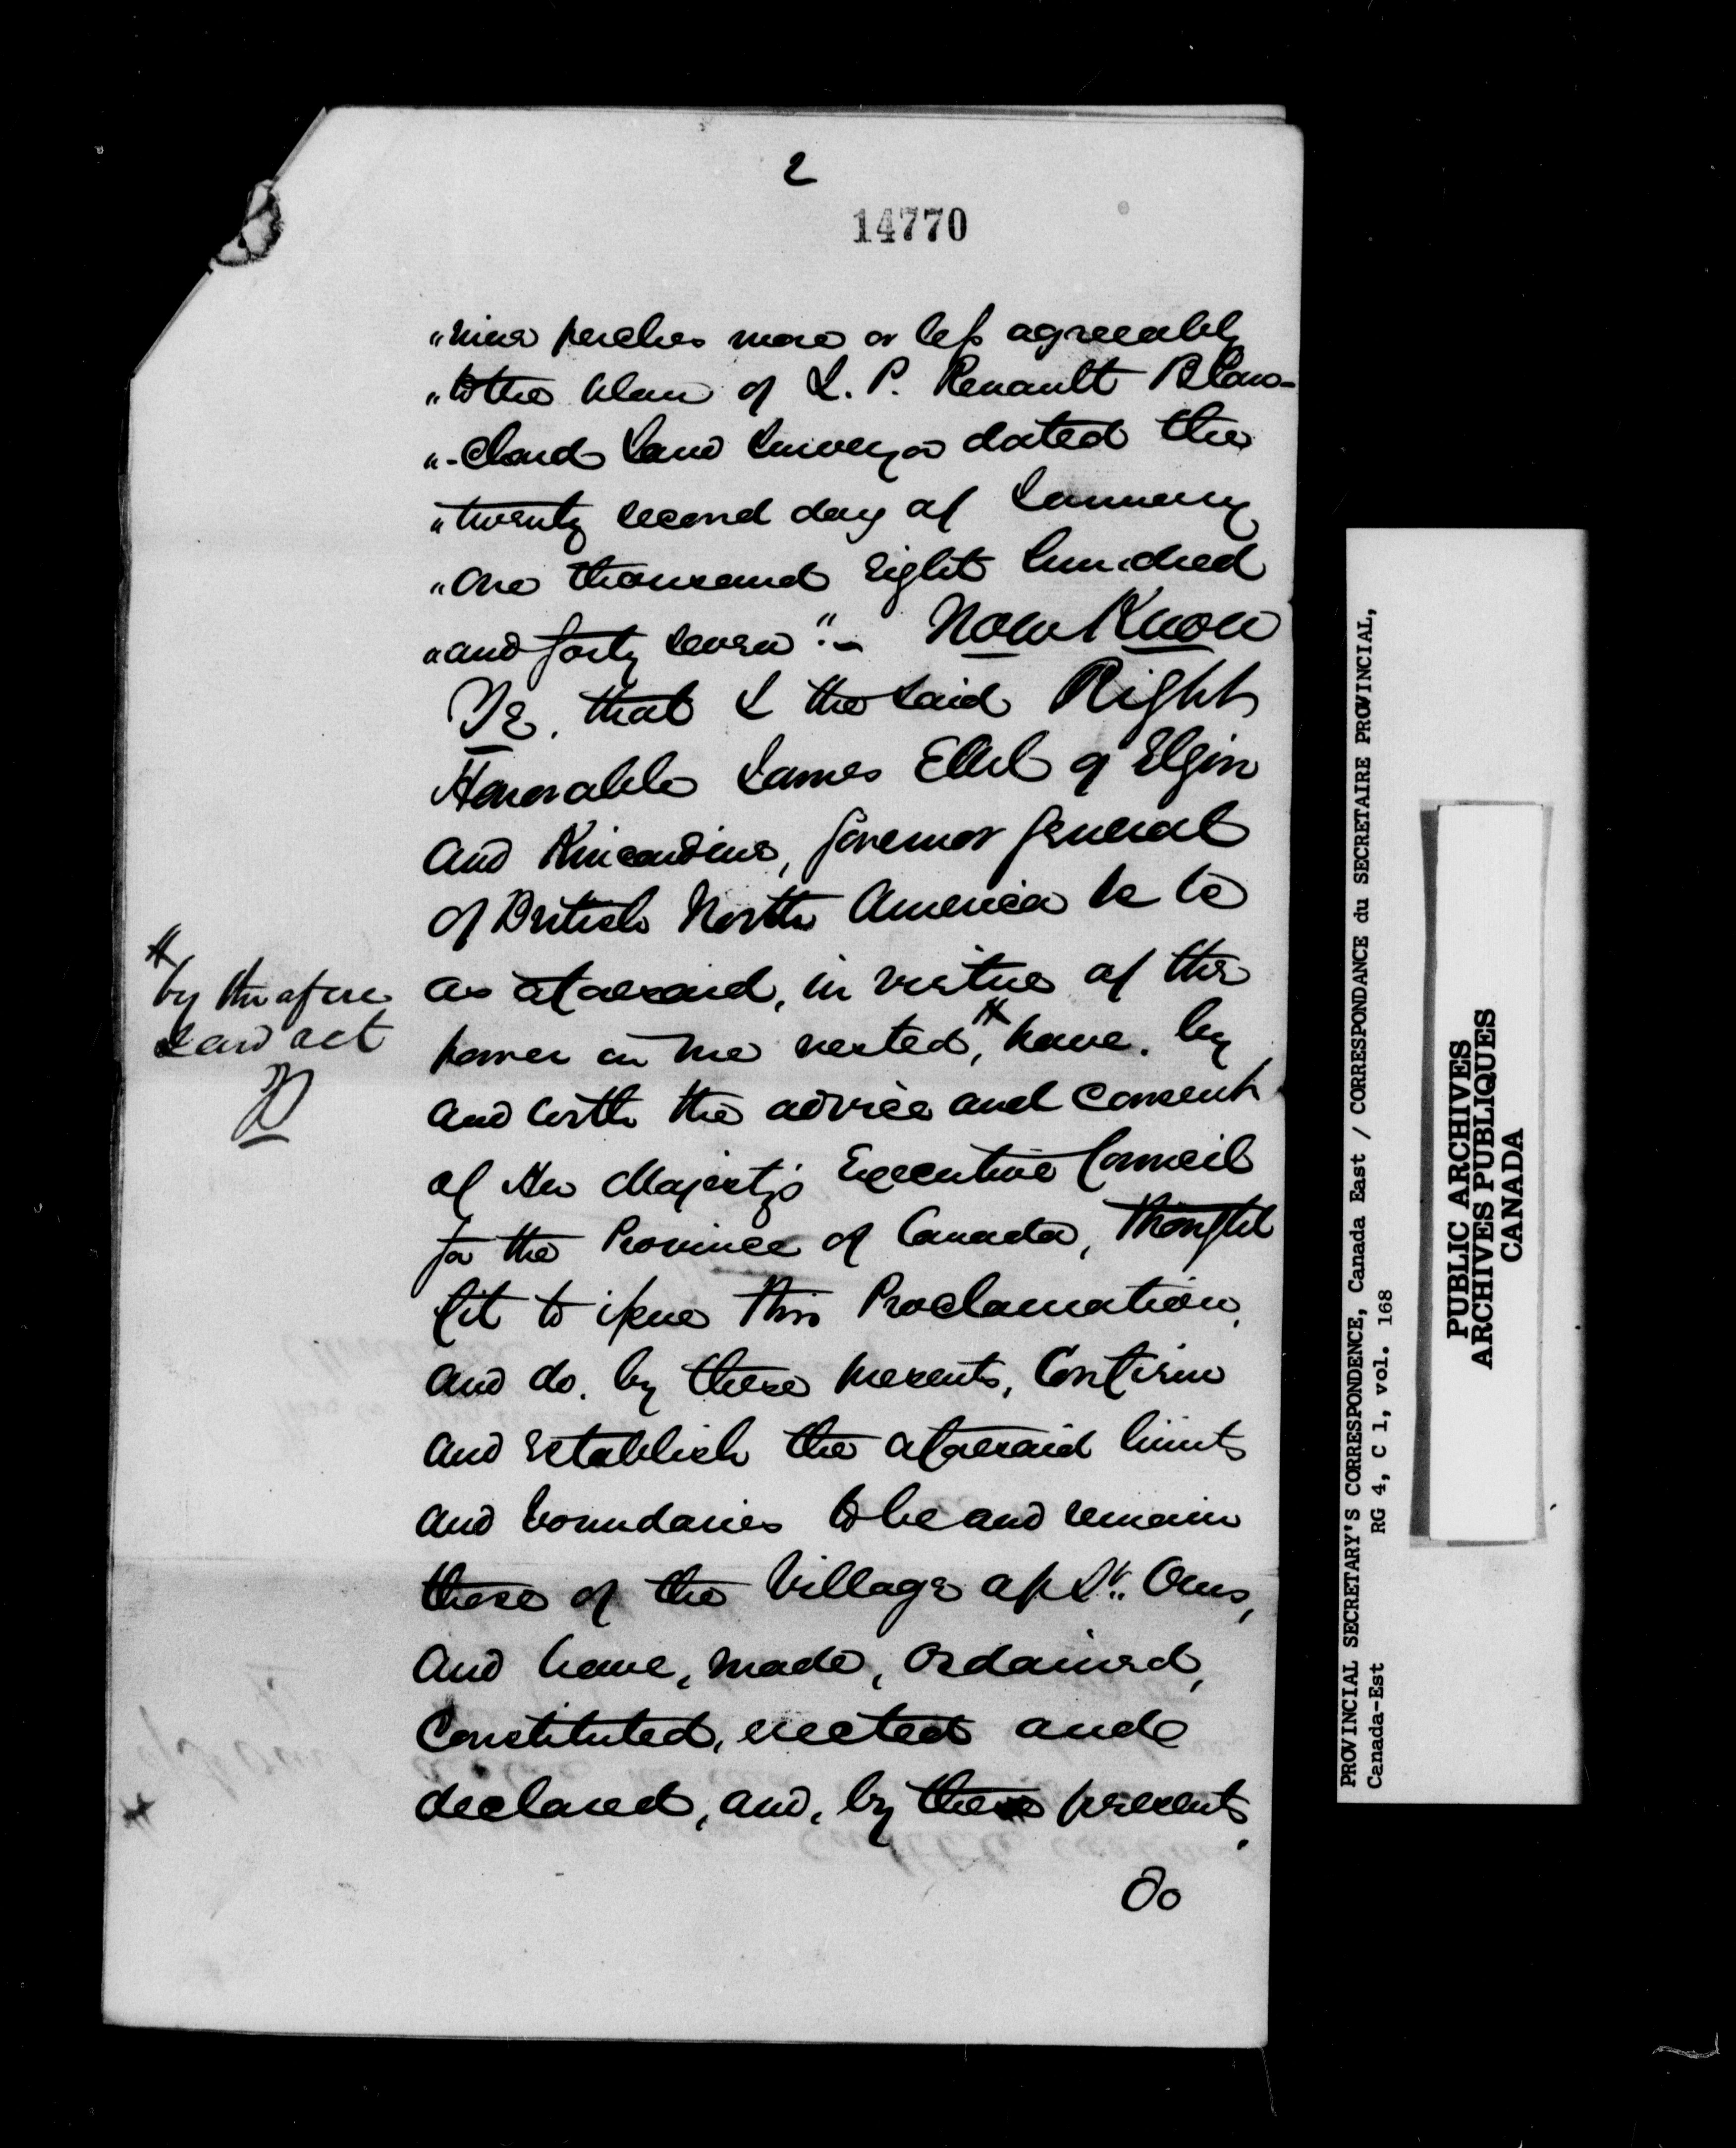 2
14770
"nine perches more or less agreeably
"to the plan of L. P. Renault Blan-
"-chard Land Surveyor dated the
"twenty second day of January
"one thousand eight hundred
"and forty seven". – Now Know
Ye, that I the said Right
Honorable James Earl of Elgin
and Kincardine, Governor General
of British North America &c &c
as aforesaid, in virtue of the
power in me vested,# have, by
#
by the afore
said act
and with the advice and consent
of Her Majesty's Executive Council
for the Province of Canada, thought
fit to issue this Proclamation,
and do, by these presents, Confirm
and establish the aforesaid limits
and boundaries to be and remain
those of the Village of St. Ours,
and have, made, ordained,
Constituted, erected and
declared, and, by these presents,
do
PROVINCIAL SECRETARY'S CORRESPONDENCE, Canada East / CORRESPONDANCE du SECRETAIRE PROVINCIAL,
Canada-Est RG 4, C 1, vol. 168
PUBLIC ARCHIVES
ARCHIVES PUBLIQUES
CANADA